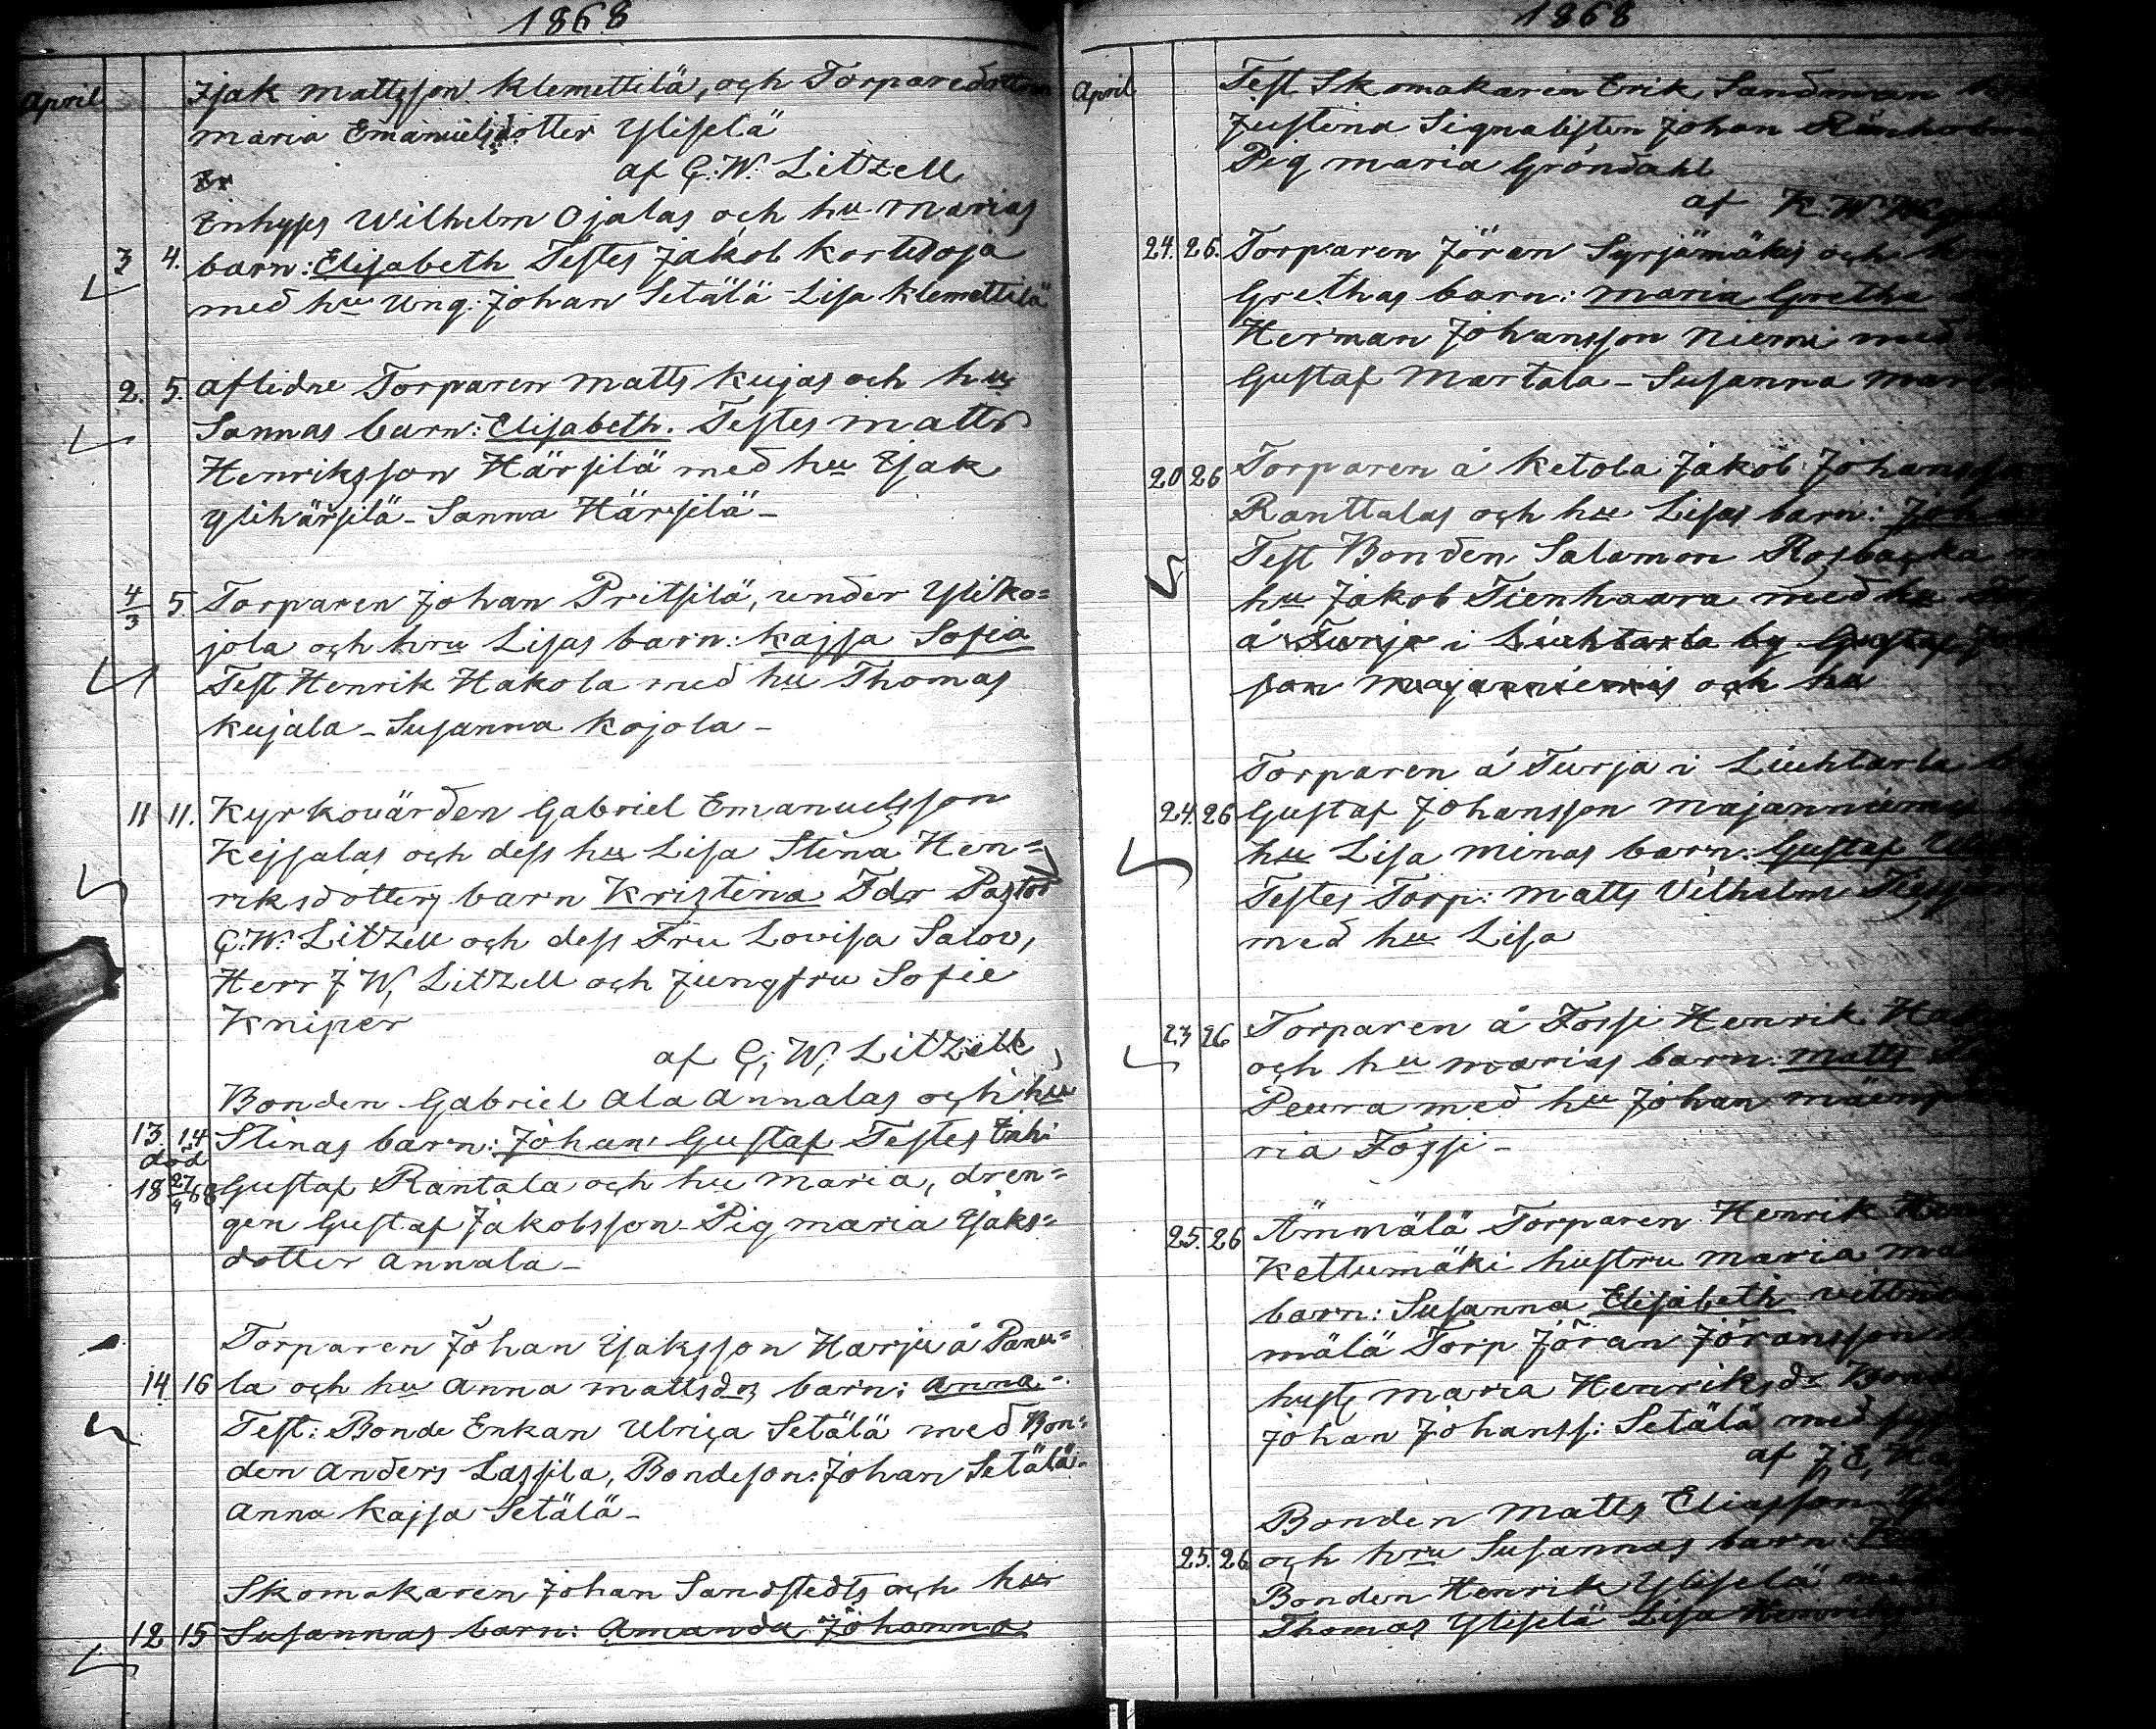 1868
April
Isak Mattsson Klemettilä, och Torparedottern
Maria Emanuelsdotter Yliselä
af G. W. Litzell
Inhyses Wilhelm Ojalas och hu Marias
3 4. barn: Elisabeth Testes Jakob Kortesoja
med hu Ung: Johan Setälä Lisa Klemettilä
2. 5. aflidne Torparen Matts Kujas och hus
Sannas barn: Elisabeth. Testes Matts
Henriksson Härsilä med hu Isak
Ylihärsilä - Sanna Härsilä -
4/3 5. Torparen Johan Pritsilä, under Yliko=
jola och hru Lisas barn: Kajsa Sofia
Test Henrik Hakola med hu Thomas
Kujala - Susanna Kojola -
11 11. Kyrkovärden Gabriel Emanuelsson
Kejsalas och dess hu Lisa Stina Hen=
riksdotters barn Kristina Fdr Pastor
G. W. Litzell och dess Fru Lovisa Salov,
Herr J. W. Litzell och Jungfru Sofie
Kniper
af G. W. Litzell
Bonden Gabriel Ala Annalas och hu
13. 14 Stinas barn: Johan Gustaf Testes Inhi
död
18 27/4 68 Gustaf Rantala och hu Maria, dren=
gen Gustaf Jakobsson Pig Maria Isaks=
dotter Annala -
Torparen Johan Isaksson Harju å Panu=
14 16 la och hu Anna Mattsdrs barn: Anna -
Test: Bonde Enkan Ulrica Setälä med Bon=
den Anders Lassila, Bondeson: Johan Setälä
Anna Kajsa Setälä -
Skomakaren Johan Sandstedts och hu
12 15 Susannas barn: Amanda Johanna
1868
April
Test Skomakaren Erik Sandman
Justina Signalisten Johan
Pig Maria Gröndahl
af K. W.
24. 26. Torparen Jöran Syrjämäkis och
Grethas barn: Maria Gretha
Herman Johansson Niemi med
Gustaf Martala - Susanna
20 26 Torparen å Ketola Jakob Johansson
Ranttalas och hu Lisas barn:
Test Bonden Salomon Rosbacka
hu Jakob Tienhaara med hu
å Turja i Liuhtarla by Gustaf
son Majanniemis och hu
Torparen å Turja i Liuhtarla
24. 26 Gustaf Johansson Majanniemis
hu Lisa Minas barn: Gustaf
Testes Torp: Matts Vilhelm
med hu Lisa
23 26 Torparen å Fossi Henrik
och hu Marias barn: Matts
Peura med hu Johan
ria Fossi -
25. 26 Ämmälä Torparen Henrik
Kettumäki hustru Maria
barn: Susanna Elisabeth
mälä Torp Jöran Jöransson
hust Maria Henriksdr
Johan Johanss: Setälä med
af J. E.
Bonden Matts Eliasson
25. 26 och hru Susannas barn:
Bonden Henrik Yliselä
Thomas Yliselä Lisa